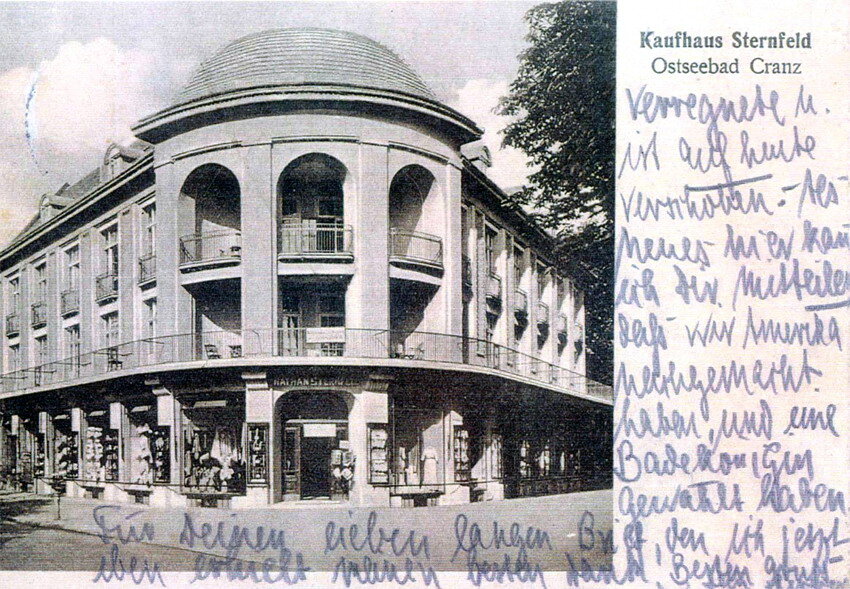 Kaufhaus Sternfeld
Ostseebad Cranz
NATHAN STERNFELD
verregnete u.
ist auf heute
verschoben. - Als
neues hier kann
ich Dir mitteilen
daß wir Amerika
nachgemacht
haben, und eine
Badekönigin
gewählt haben.
Für Deinen lieben langen Brief, den ich jetzt
eben erhielt meinen besten Dank. Besten Gruß